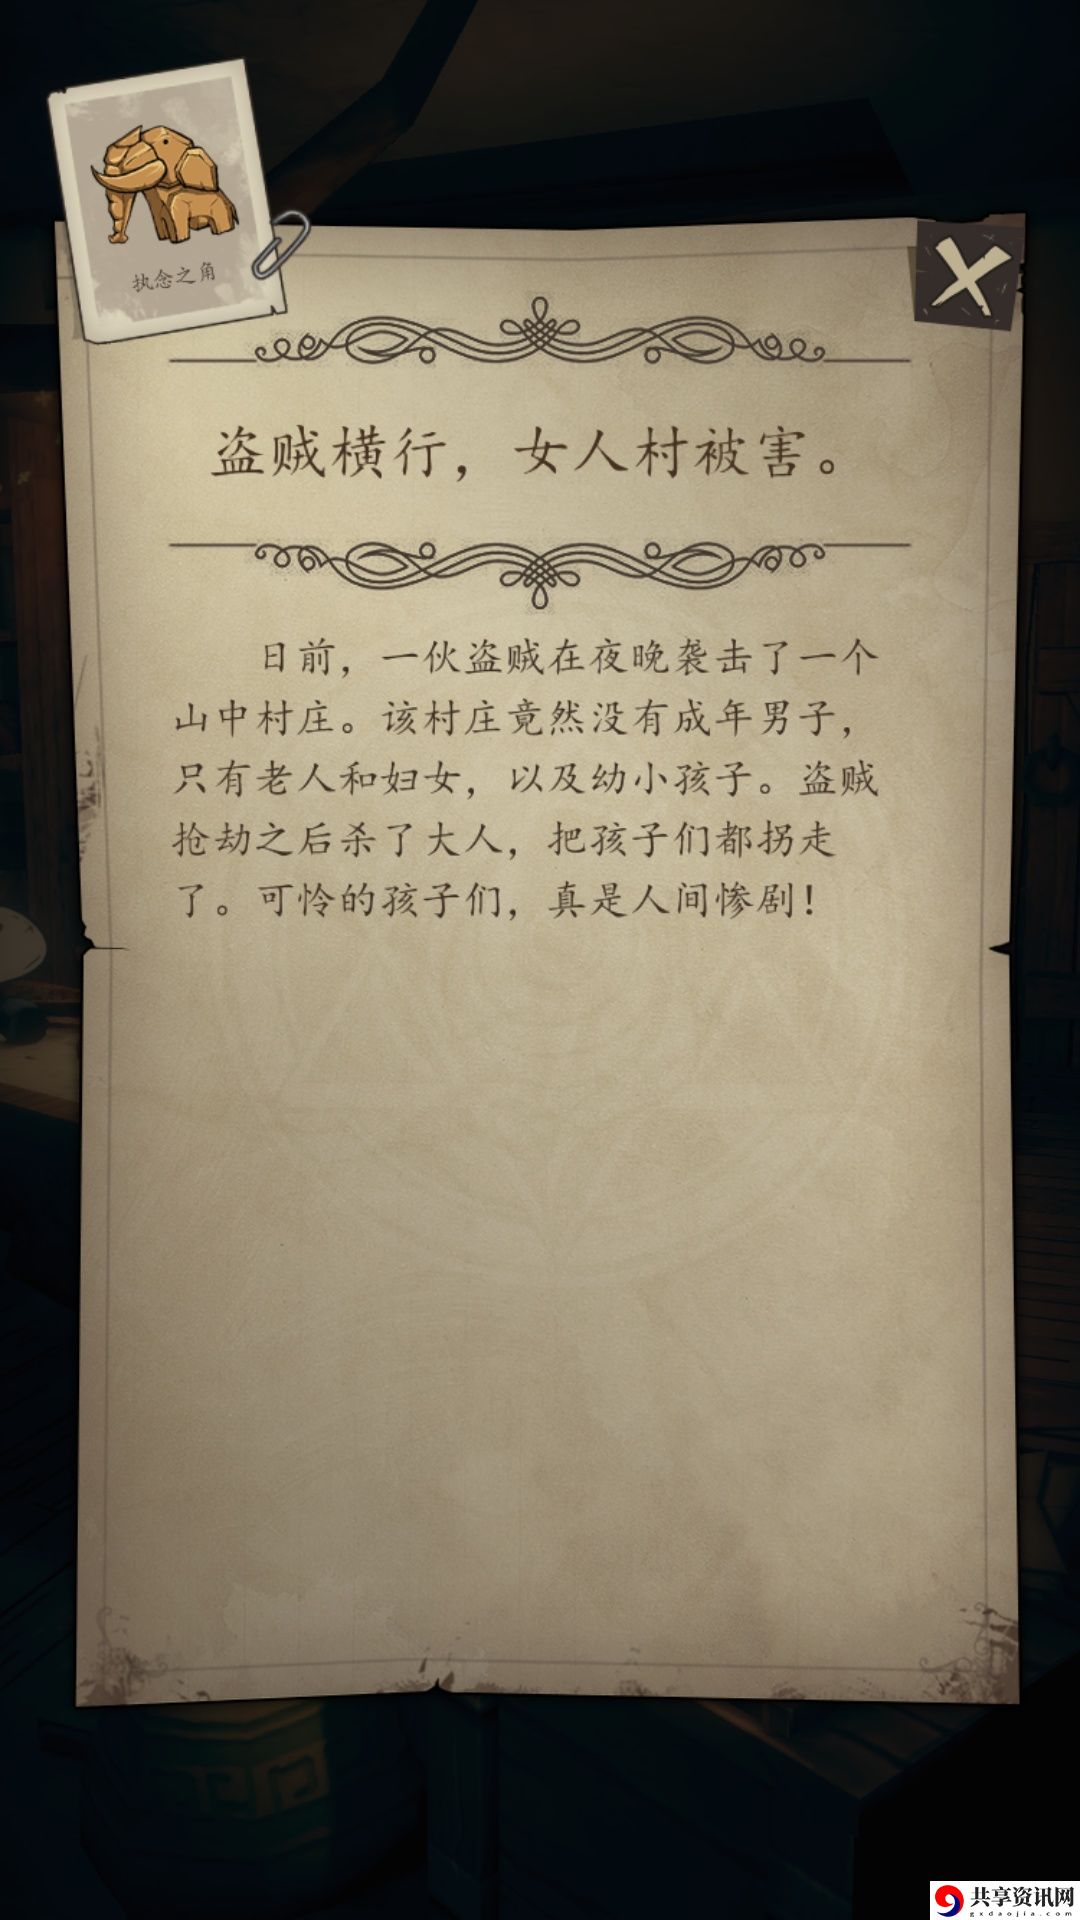 执念之角
盗贼横行，女人村被害。
日前，一伙盗贼在夜晚袭击了一个
山中村庄。该村庄竟然没有成年男子，
只有老人和妇女，以及幼小孩子。盗贼
抢劫之后杀了大人，把孩子们都拐走
了。可怜的孩子们，真是人间惨剧！
共享资讯网
gxdaojia.com